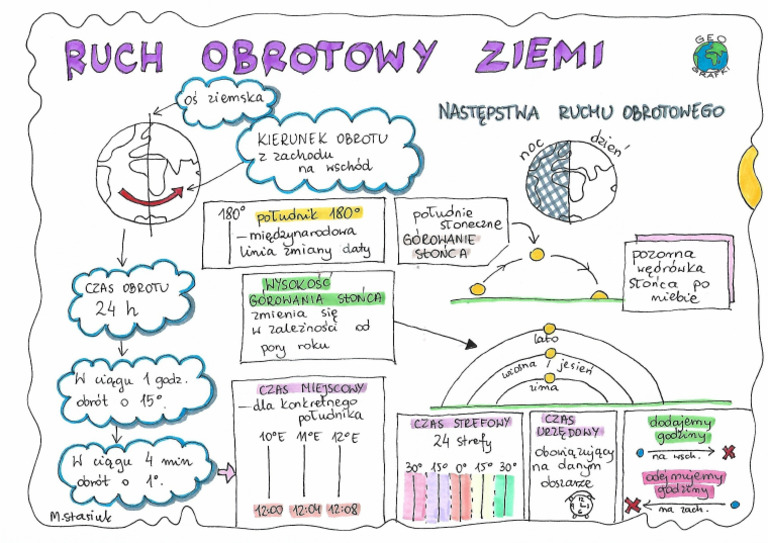 RUCH OBROTOWY ZIEMI
GEO
GRAFKI
oś ziemska
KIERUNEK OBROTU
z zachodu
na wschód
NASTĘPSTWA RUCHU OBROTOWEGO
noc
dzień
180° południk 180°
– międzynarodowa
linia zmiany daty
południe
słoneczne
GÓROWANIE
SŁOŃCA
pozorna
wędrówka
słońca po
niebie
CZAS OBROTU
24 h
WYSOKOŚĆ
GÓROWANIA SŁOŃCA
zmienia się
w zależności od
pory roku
lato
wiosna / jesień
zima
W ciągu 1 godz.
obrót o 15°.
W ciągu 4 min
obrót o 1°.
CZAS MIEJSCOWY
– dla konkretnego
południka
10°E 11°E 12°E
12:00 12:04 12:08
CZAS STREFOWY
24 strefy
30° 15° 0° 15° 30°
CZAS
URZĘDOWY
obowiązujący
na danym
obszarze
12
6
dodajemy
godziny
na wsch.
odejmujemy
godziny
na zach.
M.Stasiuk